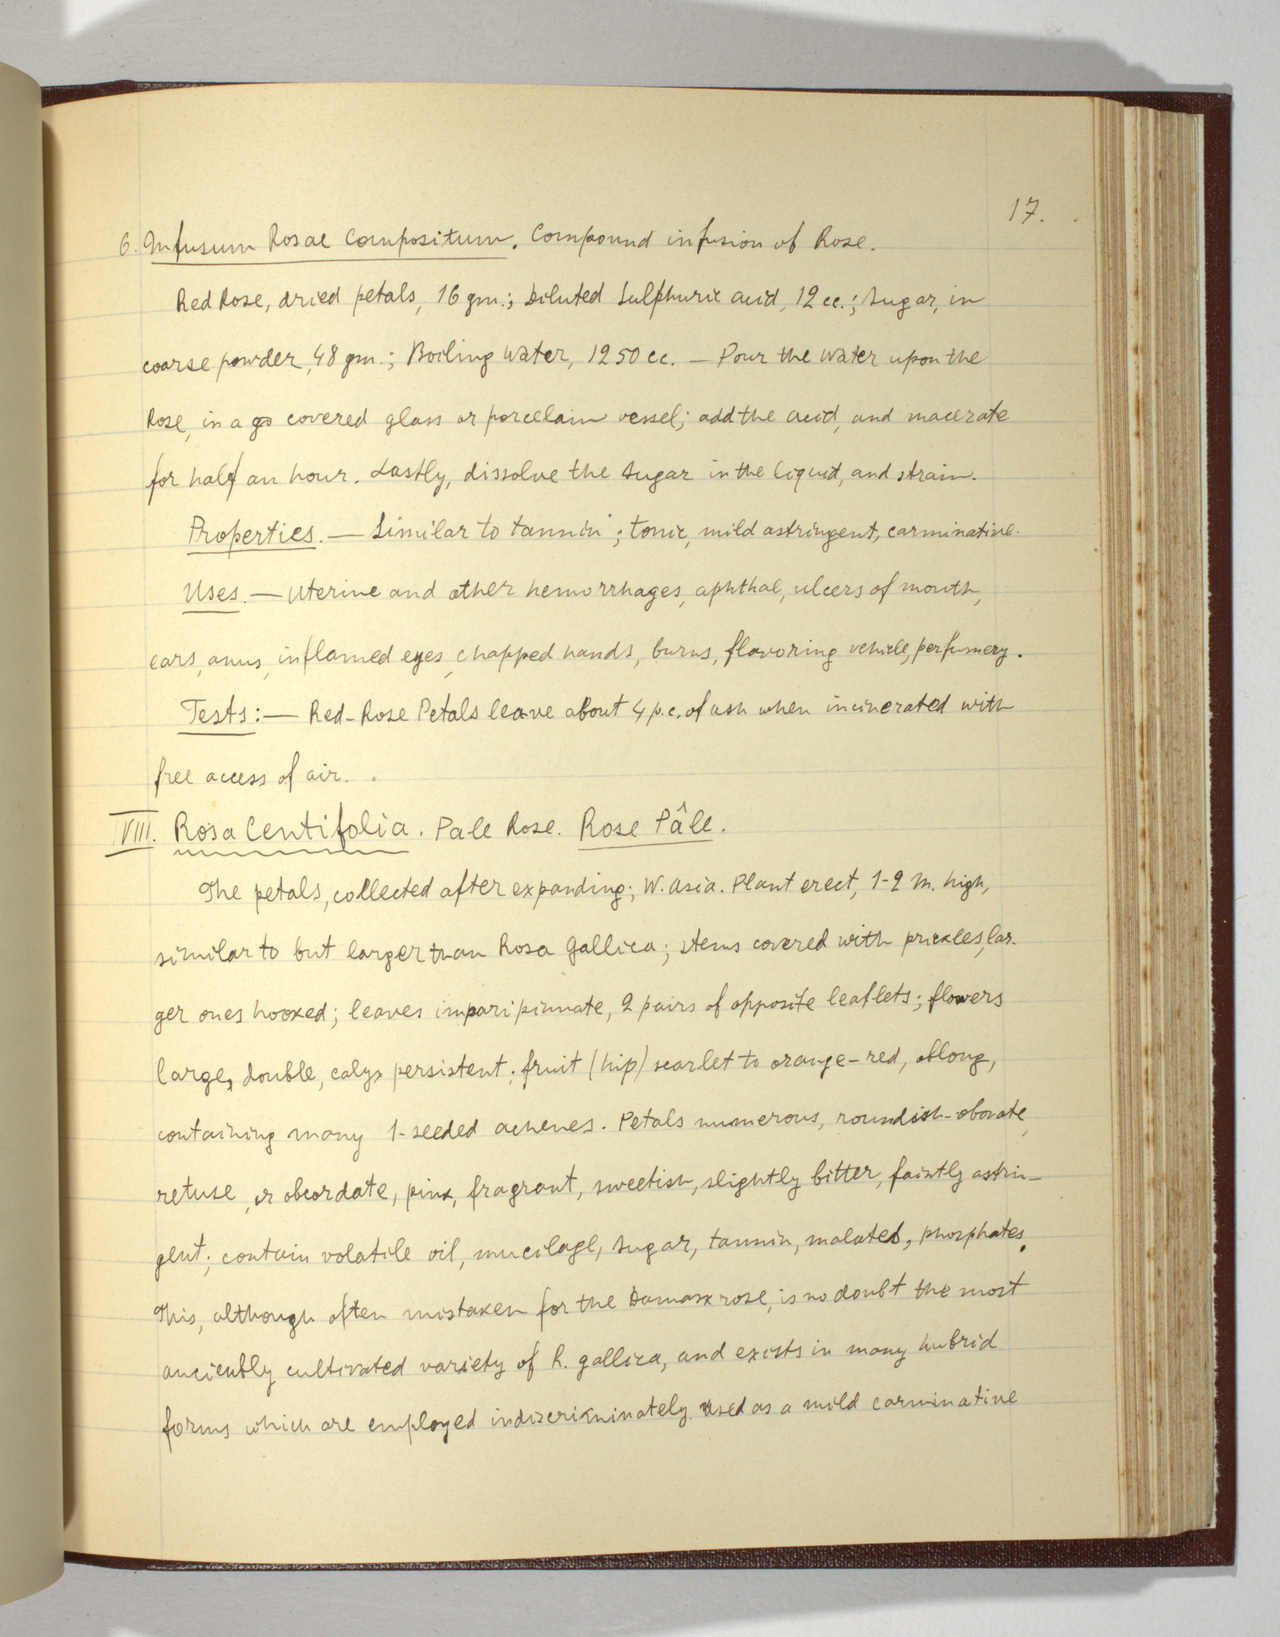 17.
6. Infusum Rosae Compositum. Compound infusion of Rose.
Red Rose, dried petals, 16 gm.; Diluted Sulphuric acid, 12 cc.; Sugar, in
coarse powder, 48 gm.; Boiling Water, 1250 cc. — Pour the Water upon the
Rose, in a go covered glass or porcelain vessel; add the acid, and macerate
for half an hour. Lastly, dissolve the Sugar in the liquid, and strain.
Properties. — Similar to tannin; tonic, mild astringent, carminative.
Uses. — Uterine and other hemorrhages, aphthae, ulcers of mouth,
ears, anus, inflamed eyes, chapped hands, burns, flavoring vehicle, perfumery.
Tests: — Red-Rose Petals leave about 4 p.c. of ash when incinerated with
free access of air.
VIII. Rosa Centifolia. Pale Rose. Rose Pâle.
The petals, collected after expanding; W. Asia. Plant erect, 1-2 M. high,
similar to but larger than Rosa Gallica; stems covered with prickles, lar-
ger ones hooked; leaves imparipinnate, 2 pairs of opposite leaflets; flowers
large, double, calyx persistent; fruit (hip) scarlet to orange-red, oblong,
containing many 1-seeded achenes. Petals numerous, roundish-obovate,
retuse, or obcordate, pink, fragrant, sweetish, slightly bitter, faintly astrin-
gent; contain volatile oil, mucilage, sugar, tannin, malates, phosphates.
This, although often mistaken for the Damask rose, is no doubt the most
anciently cultivated variety of R. gallica, and exists in many hubrid
forms which are employed indiscriminately. Used as a mild carminative